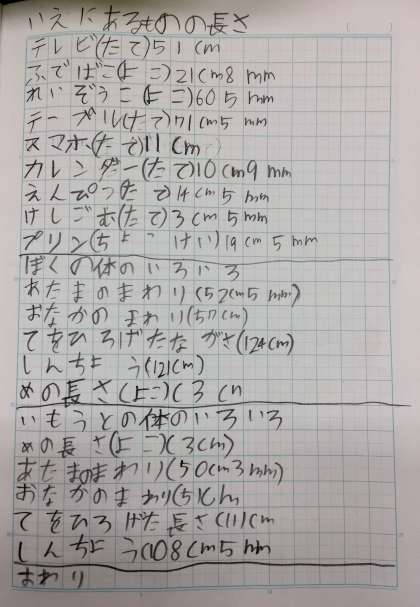 いえにあるものの長さ
テレビ(たて)51cm
ふでばこ(よこ)21cm8mm
れいぞうこ(よこ)605mm
テーブル(たて)71cm5mm
スマホ(たて)11cm
カレンダー(たて)10cm9mm
えんぴつ(たて)14cm5mm
けしごむ(たて)3cm5mm
プリン(ちょっけい)19cm5mm
ぼくの体のいろいろ
あたまのまわり(52cm5mm)
おなかのまわり(57cm)
てをひろげたながさ(124cm)
しんちょう(121cm)
めの長さ(よこ)(3cm
いもうとの体のいろいろ
めの長さ(よこ)(3cm)
あたまのまわり(50cm3mm)
おなかのまわり(51cm
てをひろげた長さ(111cm
しんちょう(108cm5mm
おわり